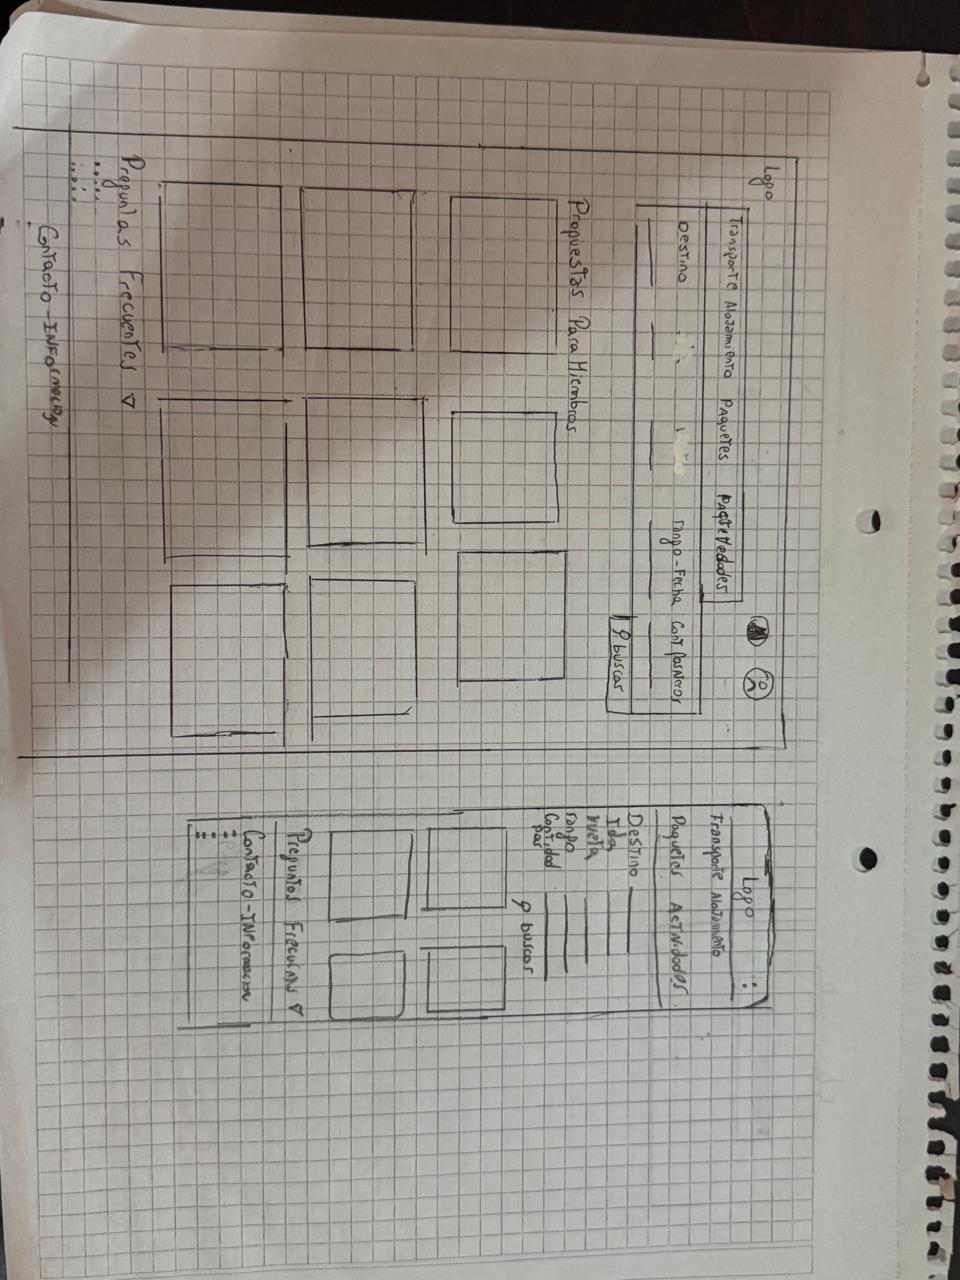 Logo
Transporte Alojamiento Paquetes
Destino
Rango-Fecha Cant Pasajeros
buscar
Propuestas Para Miembros
Preguntas Frecuentes
Contacto-INFormacion
Logo
Transporte Alojamiento
Paquetes Actividades
Destino
Ida
vuelta
Rango
Cantidad
Pas
buscar
Preguntas Frecuentes
Contacto-INFormacion